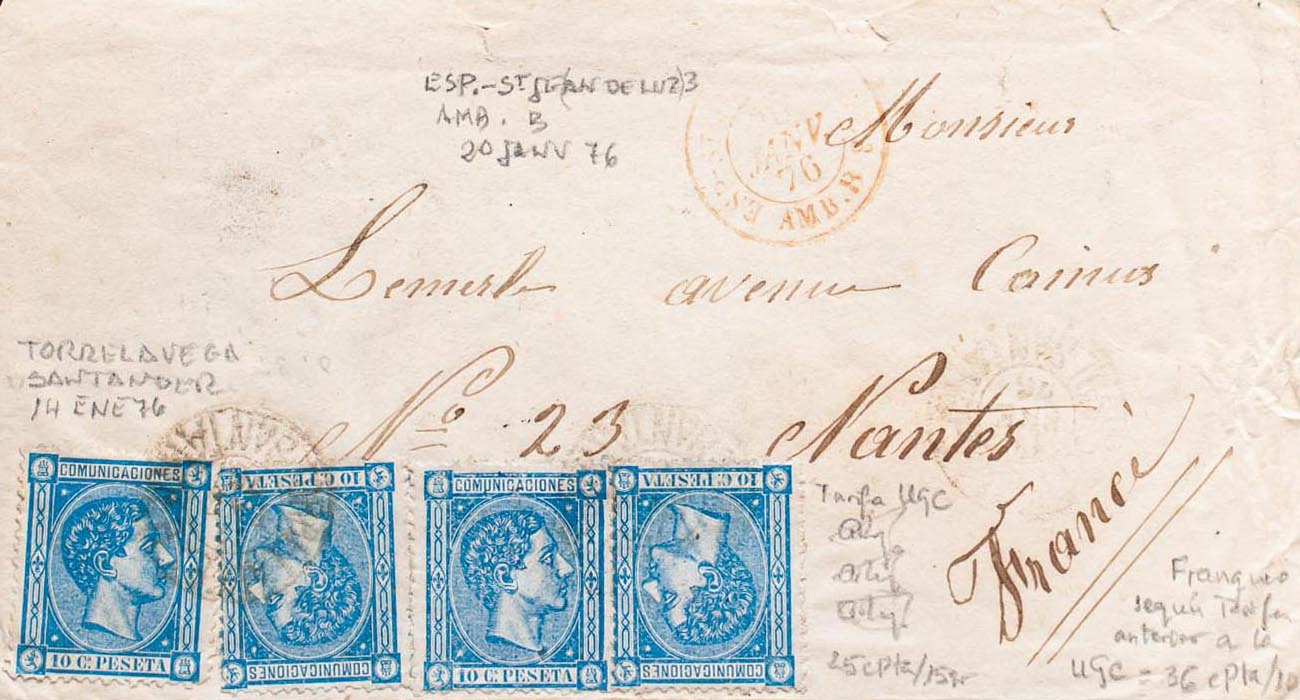 ESP.-ST JE(AN DE LUZ)3
AMB. B
20 JANV 76
JANV
76
ESP
AMB. B
Monsieur
Lemerle avenue Camus
TORRELAVEGA
SANTANDER
14 ENE 76
No 23 Nantes
France
COMUNICACIONES
10 C. PESETA
10 C. PESETA
COMUNICACIONES
COMUNICACIONES
10 C. PESETA
10 C. PESETA
COMUNICACIONES
Tarifa UGC
25 cPta/15gr
Franqueo
según Tarifa
anterior a la
UGC = 36 cPta/10